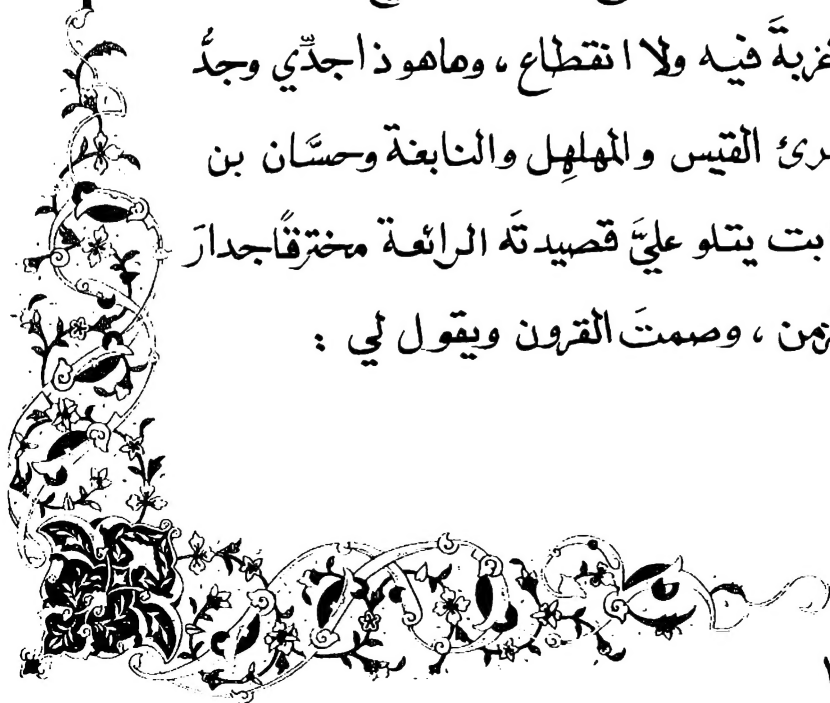 غربةَ فيه ولا انقطاع، وهاهو ذا جدِّي وجدُّ
القيس والمهلهِل والنابغة وحسَّان بن
يتلو عليَّ قصيدتَه الرائعة مخترقًا جدارَ
وصمتَ القرون ويقول لي :